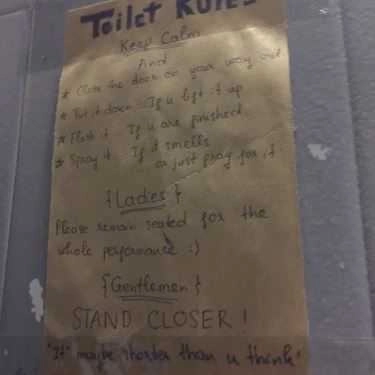 Toilet RULES
Keep Calm
And
* Close the door on your way out
* Put it down If u lift it up
* Flush it If u are finished
* Spray it If it smells
or just pray for it
{Lades}
Please remain seated for the
whole performance :)
{Gentlemen}
STAND CLOSER!
"It" maybe shorter than u think"